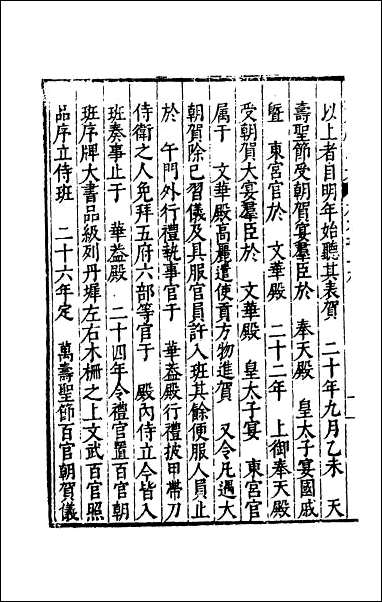 以上者自明年始聽其表賀 二十年九月乙未 天
壽聖節受朝賀宴羣臣於 奉天殿 皇太子宴國戚
曁 東宮官於 文華殿 二十二年 上御奉天殿
受朝賀大宴羣臣於 文華殿 皇太子宴 東宮官
属于 文華殿高麗遣使貢方物進賀 又令凡遇大
朝賀除已習儀及具服官員許入班其餘便服人員止
於 午門外行禮執事官于 華葢殿行禮披甲帶刀
侍衛之人免拜五府六部等官于 殿內侍立今皆入
班奏事止于 華葢殿 二十四年令禮官置百官朝
班序牌大書品級列丹墀左右木柵之上文武百官照
品序立侍班 二十六年定 萬壽聖節百官朝賀儀